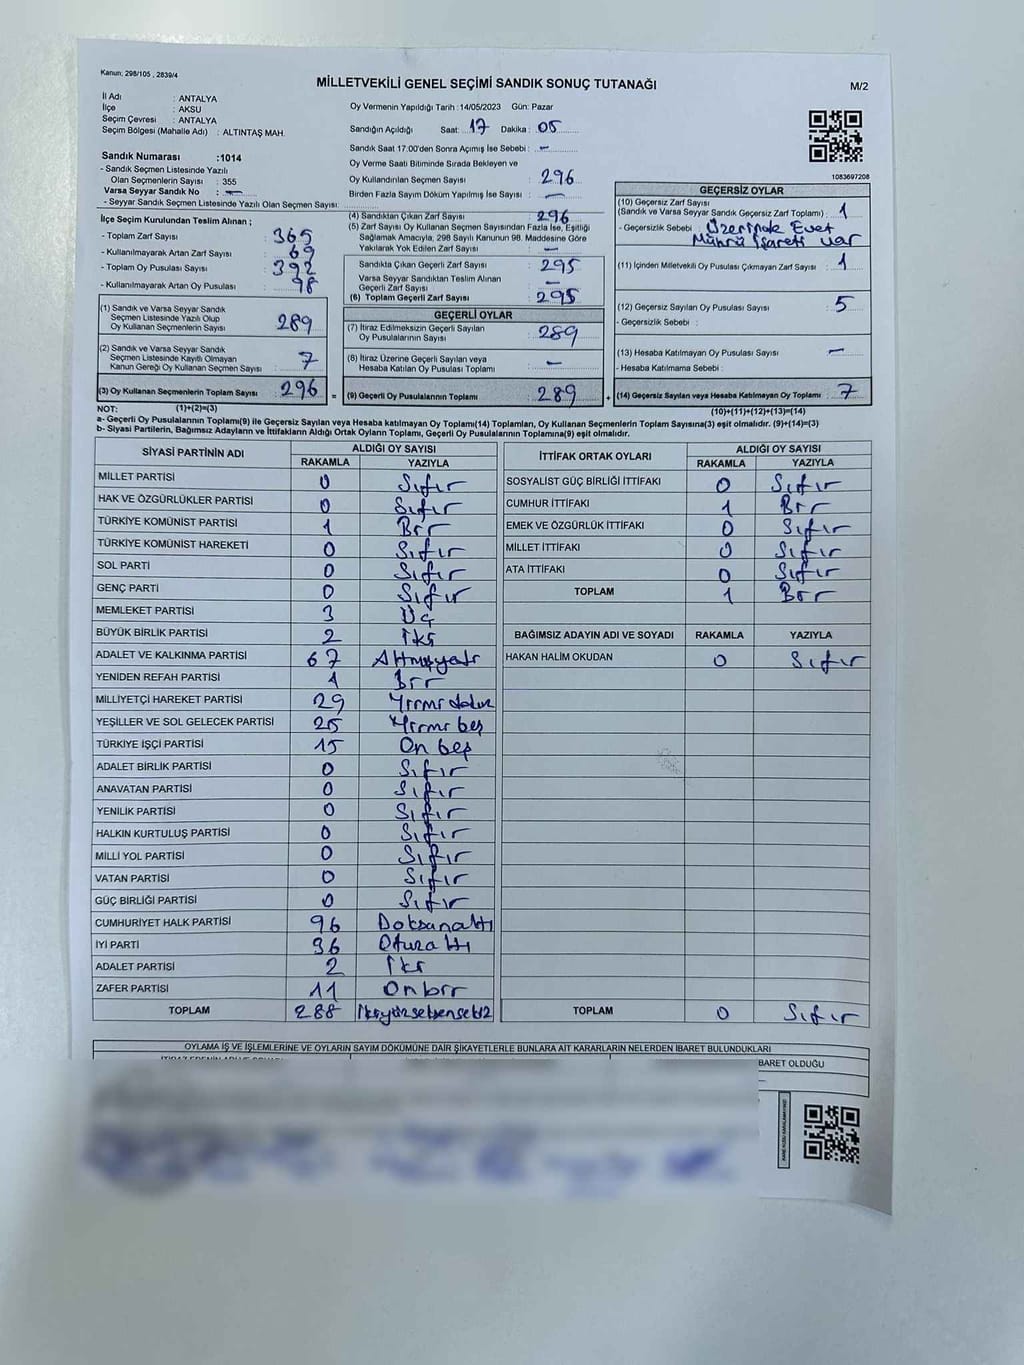 Kanun; 298/105 , 2839/4
MİLLETVEKİLİ GENEL SEÇİMİ SANDIK SONUÇ TUTANAĞI
M/2
İl Adı : ANTALYA
İlçe : AKSU
Seçim Çevresi : ANTALYA
Seçim Bölgesi (Mahalle Adı) : ALTINTAŞ MAH.
Oy Vermenin Yapıldığı Tarih :14/05/2023 Gün: Pazar
Sandığın Açıldığı Saat: 17 Dakika : 05
Sandık Saat 17:00'den Sonra Açımış İse Sebebi : -
Oy Verme Saati Bitiminde Sırada Bekleyen ve
Oy Kullandırılan Seçmen Sayısı : 296
Birden Fazla Sayım Döküm Yapılmış İse Sayısı : -
Sandık Numarası :1014
- Sandık Seçmen Listesinde Yazılı
Olan Seçmenlerin Sayısı : 355
Varsa Seyyar Sandık No : -
- Seyyar Sandık Seçmen Listesinde Yazılı Olan Seçmen Sayısı:
1083697208
İlçe Seçim Kurulundan Teslim Alınan ;
- Toplam Zarf Sayısı : 365
- Kullanılmayarak Artan Zarf Sayısı : 69
- Toplam Oy Pusulası Sayısı : 392
- Kullanılmayarak Artan Oy Pusulası : 98
(1) Sandık ve Varsa Seyyar Sandık
Seçmen Listesinde Yazılı Olup
Oy Kullanan Seçmenlerin Sayısı : 289
(2) Sandık ve Varsa Seyyar Sandık
Seçmen Listesinde Kayıtlı Olmayan
Kanun Gereği Oy Kullanan Seçmen Sayısı : 7
(3) Oy Kullanan Seçmenlerin Toplam Sayısı : 296
(4) Sandıktan Çıkan Zarf Sayısı : 296
(5) Zarf Sayısı Oy Kullanan Seçmen Sayısından Fazla İse, Eşitliği
Sağlamak Amacıyla, 298 Sayılı Kanunun 98. Maddesine Göre
Yakılarak Yok Edilen Zarf Sayısı : -
Sandıkta Çıkan Geçerli Zarf Sayısı : 295
Varsa Seyyar Sandıktan Teslim Alınan
Geçerli Zarf Sayısı : -
(6) Toplam Geçerli Zarf Sayısı : 295
GEÇERLİ OYLAR
(7) İtiraz Edilmeksizin Geçerli Sayılan
Oy Pusulalarının Sayısı : 289
(8) İtiraz Üzerine Geçerli Sayılan veya
Hesaba Katılan Oy Pusulası Toplamı : -
= (9) Geçerli Oy Pusulalarının Toplamı : 289
GEÇERSİZ OYLAR
(10) Geçersiz Zarf Sayısı
(Sandık ve Varsa Seyyar Sandık Geçersiz Zarf Toplamı) : 1
- Geçersizlik Sebebi : Üzerinde Evet
Mührü İşareti var
(11) İçinden Milletvekili Oy Pusulası Çıkmayan Zarf Sayısı : 1
(12) Geçersiz Sayılan Oy Pusulası Sayısı : 5
- Geçersizlik Sebebi :
(13) Hesaba Katılmayan Oy Pusulası Sayısı : -
- Hesaba Katılmama Sebebi :
+ (14) Geçersiz Sayılan veya Hesaba Katılmayan Oy Toplamı : 7
NOT: (1)+(2)=(3)
(10)+(11)+(12)+(13)=(14)
a- Geçerli Oy Pusulalarının Toplamı(9) ile Geçersiz Sayılan veya Hesaba katılmayan Oy Toplamı(14) Toplamları, Oy Kullanan Seçmenlerin Toplam Sayısına(3) eşit olmalıdır. (9)+(14)=(3)
b- Siyasi Partilerin, Bağımsız Adayların ve İttifakların Aldığı Ortak Oyların Toplamı, Geçerli Oy Pusulalarının Toplamına(9) eşit olmalıdır.
SİYASİ PARTİNİN ADI ALDIĞI OY SAYISI
RAKAMLA YAZIYLA
MİLLET PARTİSİ 0 Sıfır
HAK VE ÖZGÜRLÜKLER PARTİSİ 0 Sıfır
TÜRKİYE KOMÜNİST PARTİSİ 1 Bir
TÜRKİYE KOMÜNİST HAREKETİ 0 Sıfır
SOL PARTİ 0 Sıfır
GENÇ PARTİ 0 Sıfır
MEMLEKET PARTİSİ 3 Üç
BÜYÜK BİRLİK PARTİSİ 2 İki
ADALET VE KALKINMA PARTİSİ 67 Altmışyedi
YENİDEN REFAH PARTİSİ 1 Bir
MİLLİYETÇİ HAREKET PARTİSİ 29 Yirmi dokuz
YEŞİLLER VE SOL GELECEK PARTİSİ 25 Yirmi beş
TÜRKİYE İŞÇİ PARTİSİ 15 On beş
ADALET BİRLİK PARTİSİ 0 Sıfır
ANAVATAN PARTİSİ 0 Sıfır
YENİLİK PARTİSİ 0 Sıfır
HALKIN KURTULUŞ PARTİSİ 0 Sıfır
MİLLİ YOL PARTİSİ 0 Sıfır
VATAN PARTİSİ 0 Sıfır
GÜÇ BİRLİĞİ PARTİSİ 0 Sıfır
CUMHURİYET HALK PARTİSİ 96 Doksanaltı
İYİ PARTİ 36 Otuzaltı
ADALET PARTİSİ 2 İki
ZAFER PARTİSİ 11 Onbir
TOPLAM 288 İkiyüzseksensekiz
İTTİFAK ORTAK OYLARI ALDIĞI OY SAYISI
RAKAMLA YAZIYLA
SOSYALİST GÜÇ BİRLİĞİ İTTİFAKI 0 Sıfır
CUMHUR İTTİFAKI 1 Bir
EMEK VE ÖZGÜRLÜK İTTİFAKI 0 Sıfır
MİLLET İTTİFAKI 0 Sıfır
ATA İTTİFAKI 0 Sıfır
TOPLAM 1 Bir
BAĞIMSIZ ADAYIN ADI VE SOYADI RAKAMLA YAZIYLA
HAKAN HALİM OKUDAN 0 Sıfır
TOPLAM 0 Sıfır
OYLAMA İŞ VE İŞLEMLERİNE VE OYLARIN SAYIM DÖKÜMÜNE DAİR ŞİKAYETLERLE BUNLARA AİT KARARLARIN NELERDEN İBARET BULUNDUKLARI
BARET OLDUĞU